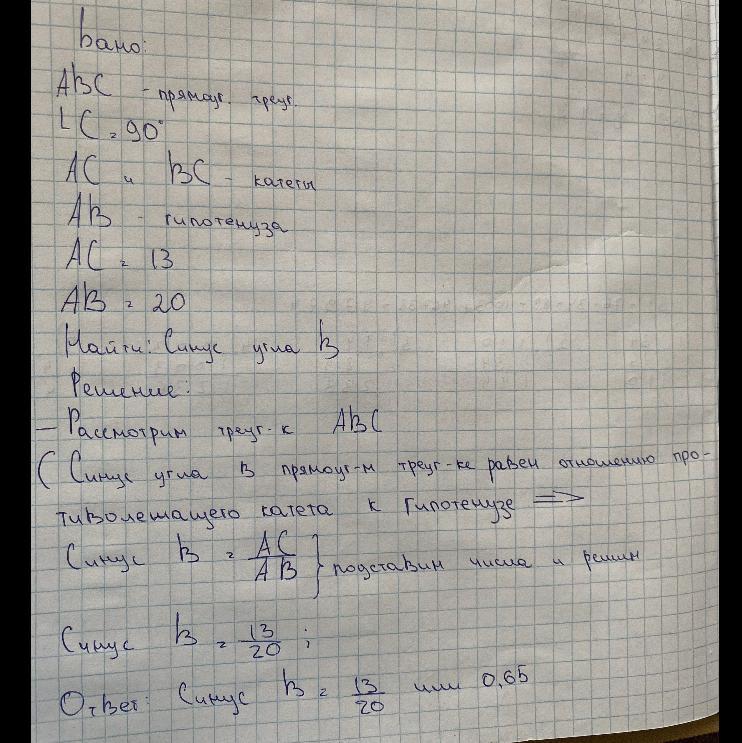 Дано:
ABC - прямоуг. треуг.
∟C = 90°
AC и BC - катеты
AB - гипотенуза
AC = 13
AB = 20
Найти: Синус угла B
Решение:
— Рассмотрим треуг-к ABC
( Синус угла в прямоуг-м треуг-ке равен отношению про-
тиволешащего катета к Гипотенузе =>
Синус B = AC/AB } подставим числа и решим
Синус B = 13/20 ;
Ответ: Синус B = 13/20 или 0,65